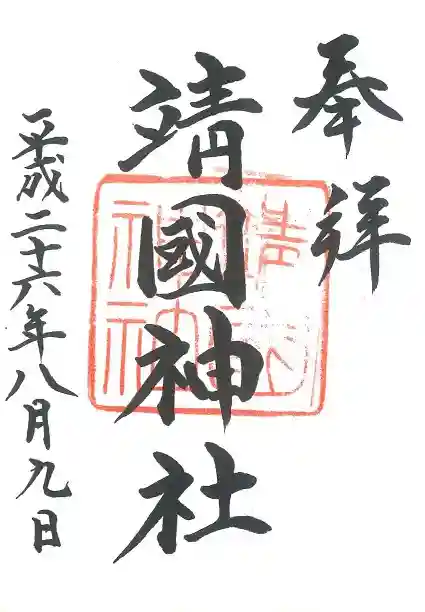 奉拝
靖國神社
平成二十六年八月九日
靖國
神社